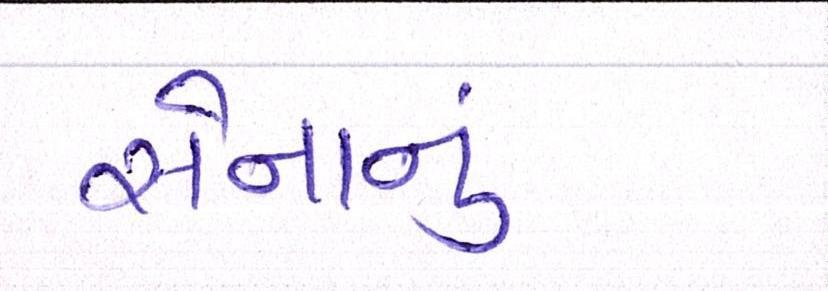 સેનાનું